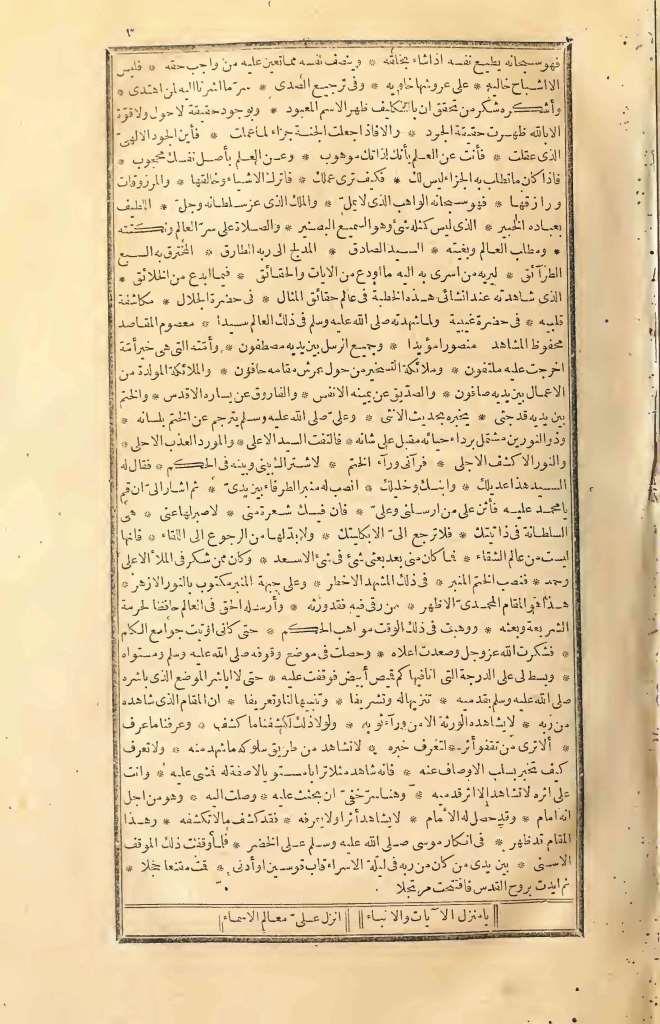 ٣
فهو سبحانه يطيع نفسه اذا شاء بخلقه * وينصف نفسه مما تعين عليه من واجب حقه * فليس
الا اشباح خاليه * على عروشها خاويه * وفي ترجيع الصدى * سر ما اشرنا اليه لمن اهتدى *
وأشكره شكر من تحقق ان بالتكليف ظهر الاسم المعبود * وبوجود حقيقة لا حول ولا قوة
الا بالله ظهرت حقيقة الجود * والا فاذا جعلت الجنة جزاء لما عملت * فأين الجود الالهى
الذى عقلت * فأنت عن العلم بأنك لذاتك موهوب * وعن العلم بأصل نفسك محجوب *
فاذا كان ما تطلب به الجزاء ليس لك * فكيف ترى عملك * فاترك الاشياء وخالقها * والمرزوقات
ورازقها * فهو سبحانه الواهب الذى لا يمل * والملك الذى عز سلطانه وجل * اللطيف
بعباده الخبير * الذى ليس كمثله شئ وهو السميع البصير * والصلاة على سر العالم ونكتته
* ومطلب العالم وبغيته * السيد الصادق * المدلج الى ربه الطارق * المخترق به السبع
الطرائق * ليريه من اسرى به اليه ما اودع من الايات والحقائق * فيما ابدع من الخلائق *
الذى شاهدته عند انشائى هذه الخطبة فى عالم حقائق المثال * فى حضرة الجلال * مكاشفة
قلبيه * فى حضرة غيبية * ولما شهدته صلى الله عليه وسلم فى ذلك العالم سيدا * معصوم المقاصد
محفوظ المشاهد * منصورا مؤيدا * وجميع الرسل بين يديه مصطفون * وأمته التى هى خير أمة
اخرجت عليه ملتفون * وملائكة التسخير من حول عرش مقامه حافون * والملائكة المولدة من
الاعمال بين يديه صافون * والصديق عن يمينه الانفس * والفاروق عن يساره الاقدس * والختم
بين يديه قد جثى * يخبره بحديث الانثى * وعلى صلى الله عليه وسلم يترجم عن الختم بلسانه *
وذو النورين مشتمل برداء حيائه مقبل على شانه * فالتفت السيد الاعلى * والمورد العذب الاحلى *
والنور الاكشف الاجلى * فرآنى وراء الختم * لاشتراك بينى وبينه فى الحكم * فقال له
السيد هذا عديلك * وابنك وخليلك * انصب له منبر الطرفاء بين يدى * ثم اشار الى ان قم
يا محمد عليه * فأثن على من ارسلنى وعلى * فان فيك شعرة منى * لا صبر لها عنى * هى
السلطانة فى ذاتيتك * فلا ترجع الى الا بكليتك * ولا بد لها من الرجوع الى اللقاء * فانها
ليست من عالم الشقاء * فما كان منى بعد بعثى شئ فى شئ الا سعد * وكان ممن شكر فى الملأ الاعلى
وحمد * فنصب الختم المنبر * فى ذلك المشهد الاخطر * وعلى جبهة المنبر مكتوب بالنور الازهر *
هذا هو المقام المحمدى الاطهر * من رقى فيه فقد ورثه * وأرسله الحق فى العالم حافظا لحرمة
الشريعة وبعثه * ووهبت فى ذلك الوقت مواهب الحكم * حتى كأنى اوتيت جوامع الكلم
* فشكرت الله عز وجل وصعدت اعلاه * وحصلت فى موضع وقوفه صلى الله عليه وسلم ومستواه
* وبسط لى على الدرجة التى انا فيها كم قميص أبيض فوقفت عليه * حتى لا اباشر الموضع الذى باشره
صلى الله عليه وسلم بقدميه * تنزيها له وتشريفا * وتنبيها لنا وتعريفا * ان المقام الذى شاهده
من ربه * لا يشاهده الورثة الا من وراء ثوبه * ولولا ذلك لكشفنا ما كشف * وعرفنا ما عرف
* ألا ترى من تقفو أثره لتعرف خبره * لا تشاهد من طريق سلوكه ما شهد منه * ولا تعرف
كيف تخبر بسلب الاوصاف عنه * فانه شاهد مثلا ترابا مستويا لا صفة له فمشى عليه * وانت
على اثره لا تشاهد الا اثر قدميه * وهنا سر خفى ان بحثت عليه * وصلت اليه * وهو من اجل
انه امام * وقد حصل له الأمام * لا يشاهد أثرا ولا يعرفه * فقد كشف ما لا تكشفه * وهذا
المقام قد ظهر * فى انكار موسى صلى الله عليه وسلم على الخضر * فلما وقفت ذلك الموقف
الاسنى * بين يدى من كان من ربه فى ليلة الاسراء قاب قوسين او أدنى * قمت مقنعا خجلا *
ثم ايدت بروح القدس فافتتحت مرتجلا
يا منزل الآيات والانباء انزل على معالم الاسماء